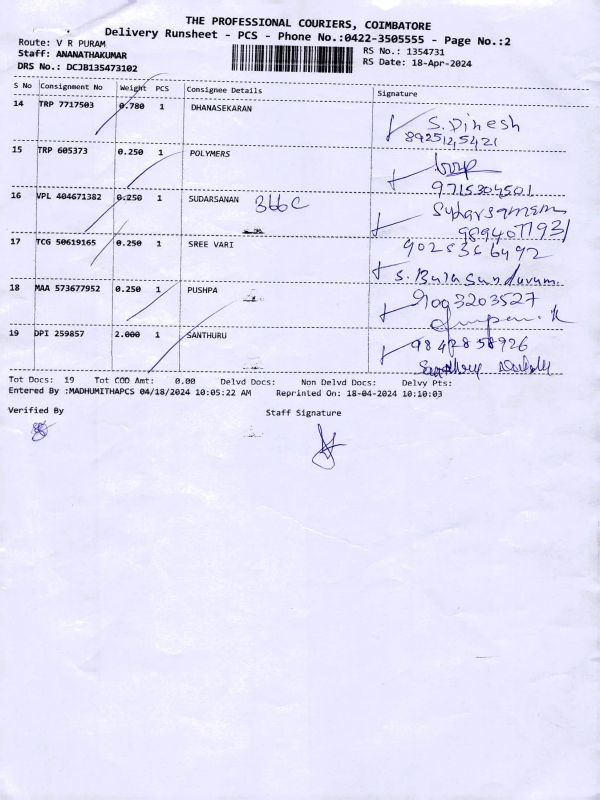 THE PROFESSIONAL COURIERS, COIMBATORE
Delivery Runsheet - PCS - Phone No.:0422-3505555 - Page No.:2
Route: V R PURAM
RS No.: 1354731
Staff: ANANATHAKUMAR
RS Date: 18-Apr-2024
DRS No.: DCJB135473102
S No Consignment No Weight PCS Consignee Details Signature
14 TRP 7717503 0.780 1 DHANASEKARAN
S. Dinesh
8925125421
15 TRP 605373 0.250 1 POLYMERS
9715304501
16 VPL 404671382 0.250 1 SUDARSANAN 366C
9894077931
17 TCG 50619165 0.250 1 SREE VARI
9025366492
S. Bala Sundaram.
18 MAA 573677952 0.250 1 PUSHPA
9003203527
19 DPI 259857 2.000 1 SANTHURU
9842858926
Tot Docs: 19 Tot COD Amt: 0.00 Delvd Docs: Non Delvd Docs: Delvy Pts:
Entered By :MADHUMITHAPCS 04/18/2024 10:05:22 AM Reprinted On: 18-04-2024 10:10:03
Verified By Staff Signature